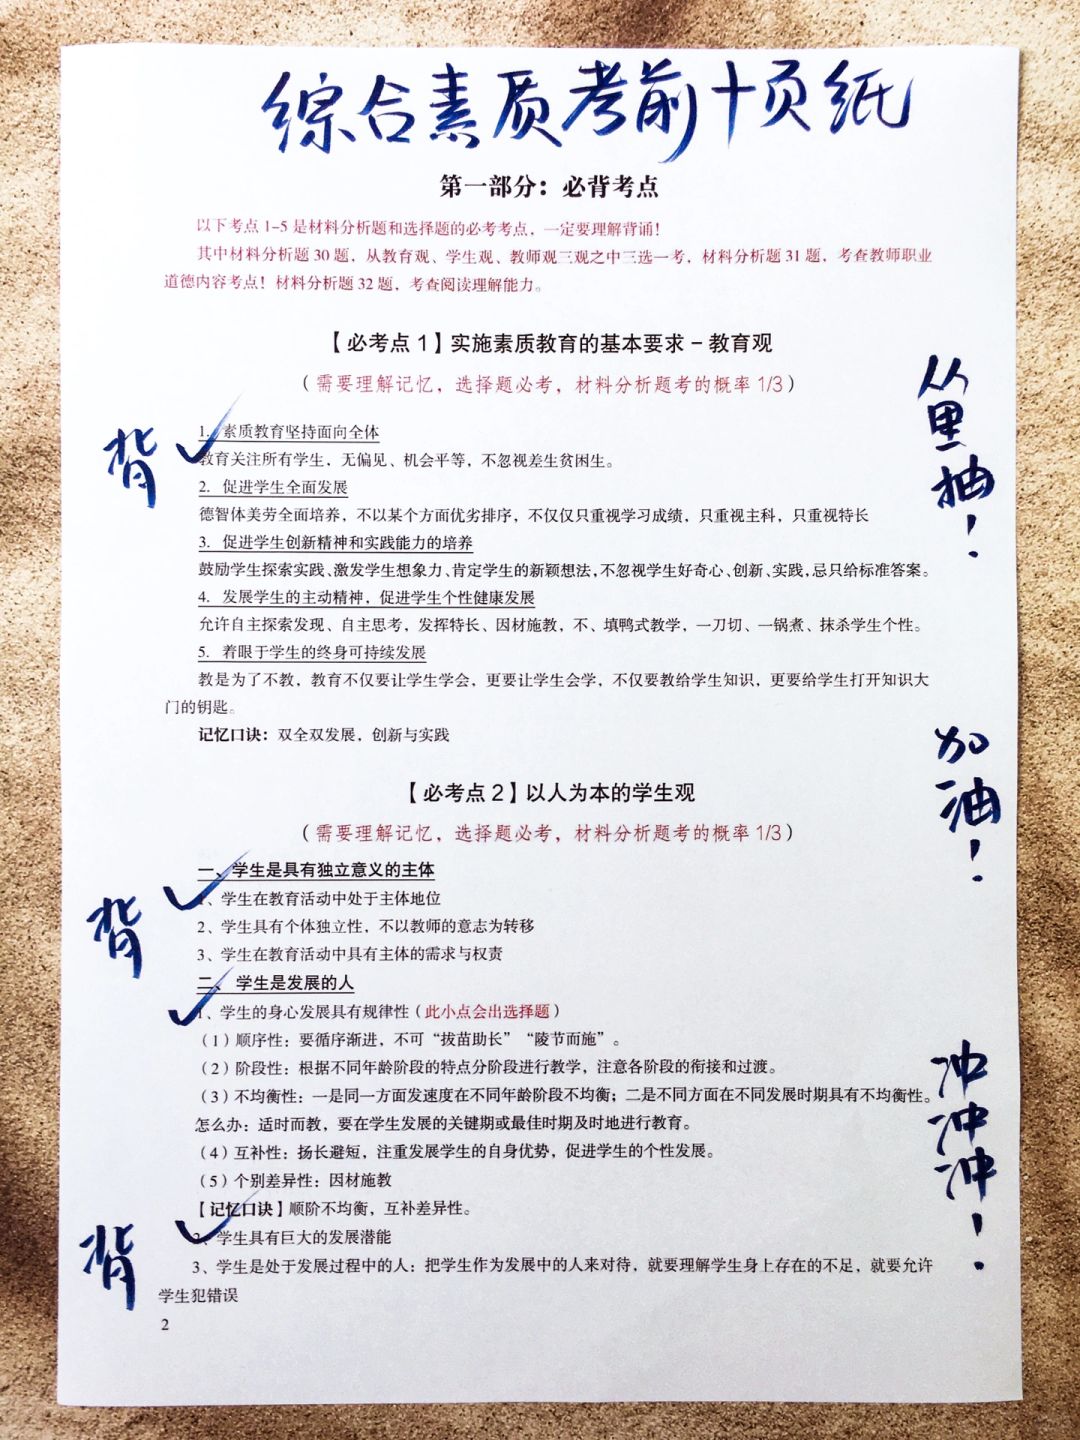 综合素质考前十页纸
第一部分：必背考点
以下考点 1-5 是材料分析题和选择题的必考考点，一定要理解背诵！
其中材料分析题 30 题，从教育观、学生观、教师观三观之中三选一考，材料分析题 31 题，考查教师职业
道德内容考点！材料分析题 32 题，考查阅读理解能力。
【必考点 1】实施素质教育的基本要求 – 教育观
（需要理解记忆，选择题必考，材料分析题考的概率 1/3）
从里抽！
背
1. 素质教育坚持面向全体
教育关注所有学生，无偏见、机会平等，不忽视差生贫困生。
2. 促进学生全面发展
德智体美劳全面培养，不以某个方面优劣排序，不仅仅只重视学习成绩，只重视主科，只重视特长
3. 促进学生创新精神和实践能力的培养
鼓励学生探索实践、激发学生想象力、肯定学生的新颖想法，不忽视学生好奇心、创新、实践，忌只给标准答案。
4. 发展学生的主动精神，促进学生个性健康发展
允许自主探索发现、自主思考，发挥特长、因材施教，不、填鸭式教学，一刀切、一锅煮、抹杀学生个性。
5. 着眼于学生的终身可持续发展
教是为了不教，教育不仅要让学生学会，更要让学生会学，不仅要教给学生知识，更要给学生打开知识大
门的钥匙。
记忆口诀：双全双发展，创新与实践
加油！
【必考点 2】以人为本的学生观
（需要理解记忆，选择题必考，材料分析题考的概率 1/3）
一、学生是具有独立意义的主体
背
1、学生在教育活动中处于主体地位
2、学生具有个体独立性，不以教师的意志为转移
3、学生在教育活动中具有主体的需求与权责
二、 学生是发展的人
1、学生的身心发展具有规律性（此小点会出选择题）
（1）顺序性：要循序渐进，不可“拔苗助长”“陵节而施”。
（2）阶段性：根据不同年龄阶段的特点分阶段进行教学，注意各阶段的衔接和过渡。
（3）不均衡性：一是同一方面发速度在不同年龄阶段不均衡；二是不同方面在不同发展时期具有不均衡性。
怎么办：适时而教，要在学生发展的关键期或最佳时期及时地进行教育。
（4）互补性：扬长避短，注重发展学生的自身优势，促进学生的个性发展。
（5）个别差异性：因材施教
冲冲冲！
【记忆口诀】顺阶不均衡，互补差异性。
背
2、学生具有巨大的发展潜能
3、学生是处于发展过程中的人：把学生作为发展中的人来对待，就要理解学生身上存在的不足，就要允许
学生犯错误
2